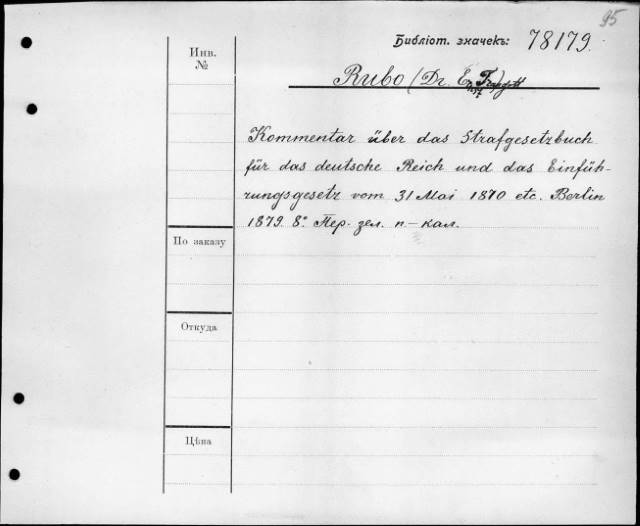 95
Библіот. значекъ: 78179.
Инв.
№
Rubo (Dr. Ernst Traugott)
Kommentar über das Strafgesetzbuch
für das deutsche Reich und das Einfüh-
rungsgesetz vom 31 Mai 1870 etc. Berlin
1879. 8º. Пер. зел. п-кал.
По заказу
Откуда
Цѣна